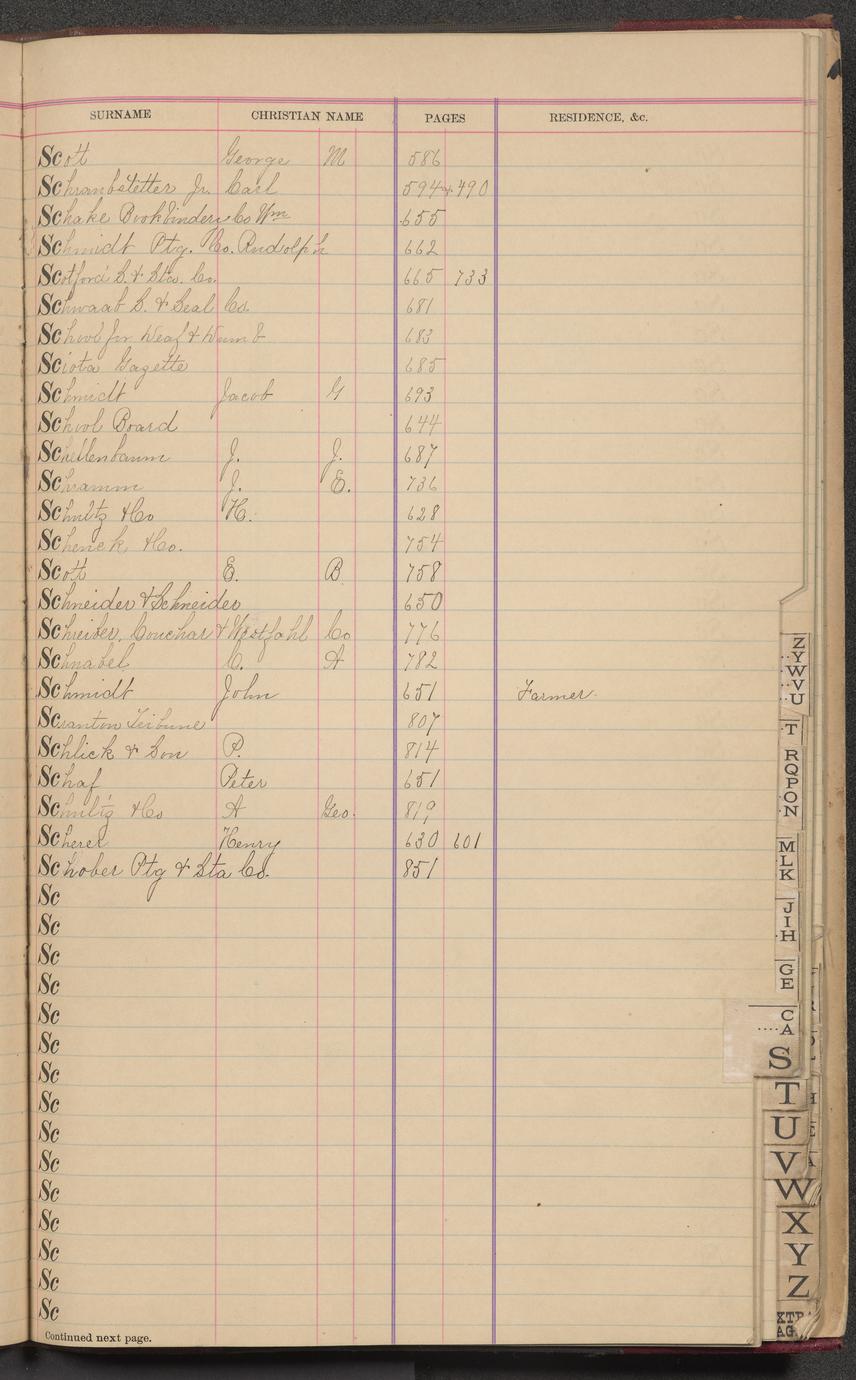 SURNAME CHRISTIAN NAME PAGES RESIDENCE, &c.
Scott George M 586
Schranbstetter Jr. Carl 594 & 490
Schake Bookbindery Co Wm 655
Schmidt Ptg. Co. Rudolph 662
Scotford S. & Sta. Co. 665 733
Schwaab S. & Seal Co. 681
School for Deaf & Dumb 683
Sciota Gazette 685
Schmidt Jacob G 693
School Board 644
Schellenbaum J. J. 687
Schramm J. E. 736
Schultz & Co H. 628
Schenck & Co. 754
Scott E. B. 758
Schneider & Schneider 650
Schreiber, Conchar & Westfahl Co 776
Schnabel C. A 782
Schmidt John 651 Farmer.
Scranton Tribune 807
Schlick & Son P. 814
Schaf Peter 651
Schultz & Co A Geo. 819
Scherer Henry 630 601
Schober Ptg & Sta Co. 851
Sc
Sc
Sc
Sc
Sc
Sc
Sc
Sc
Sc
Sc
Sc
Sc
Sc
Sc
Sc
Continued next page.
Z
Y
W
V
U
T
R
Q
P
O
N
M
L
K
J
I
H
G
E
C
A
S
T
U
V
W
X
Y
Z